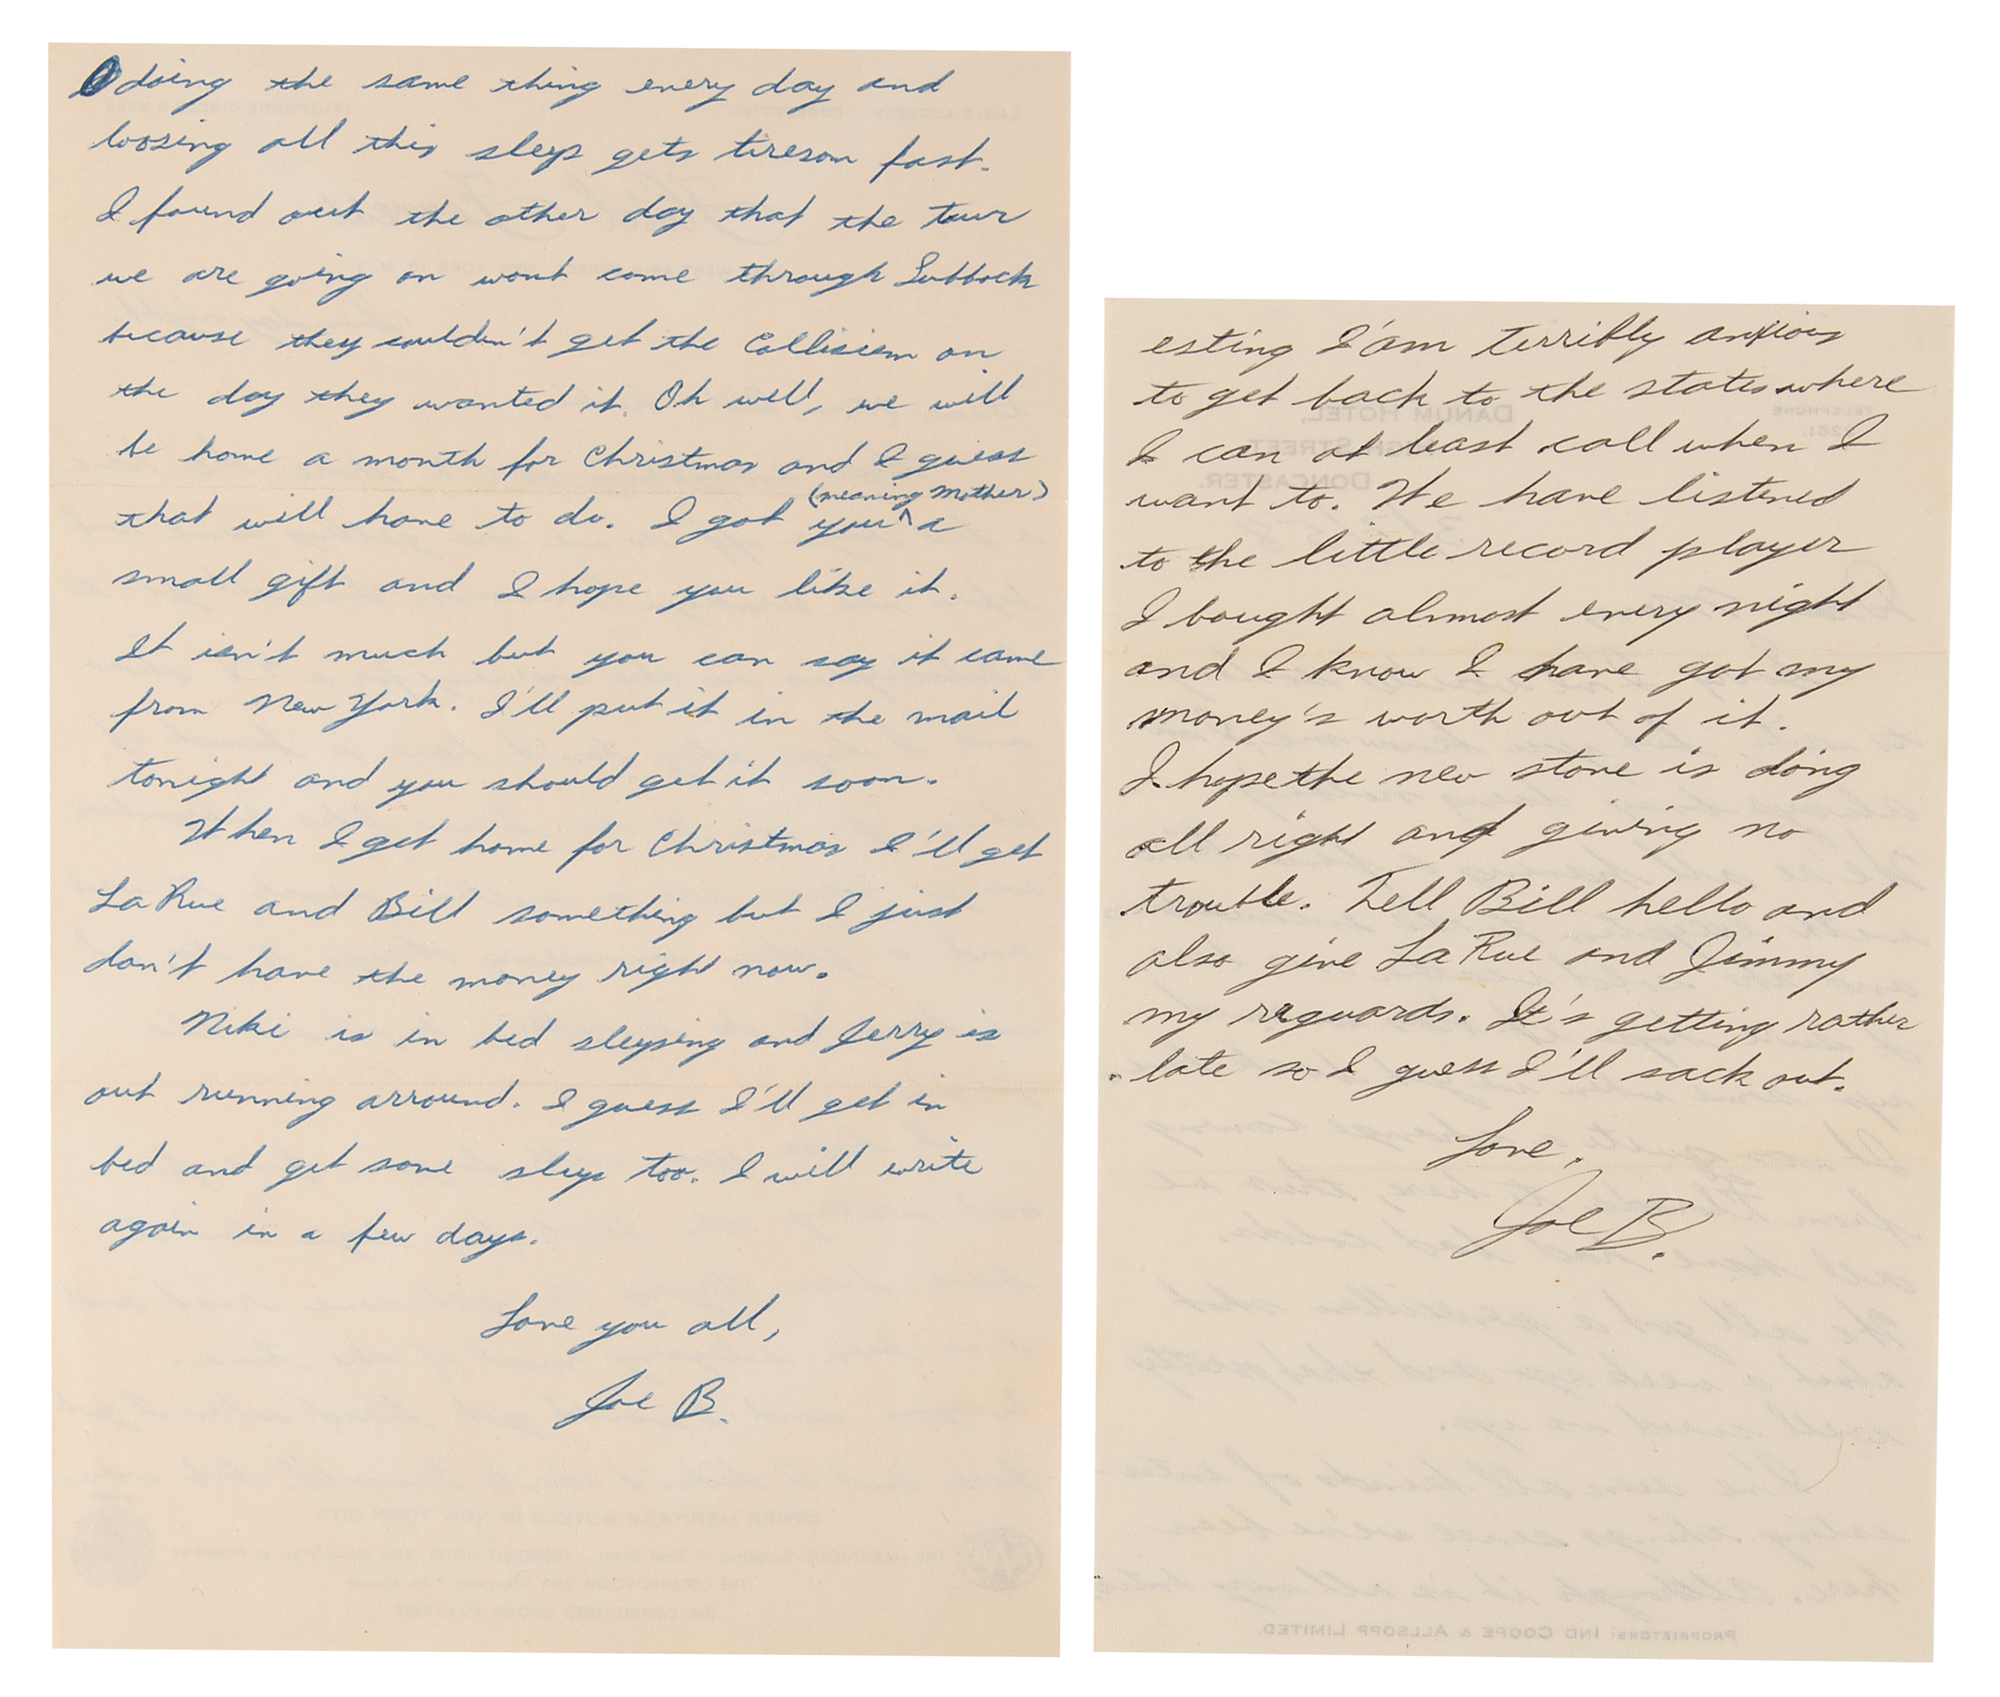 doing the same thing every day and
loosing all this sleep gets tiresom fast.
I found out the other day that the tour
we are going on wont come through Lubbock
because they couldn't get the Colliseum on
the day they wanted it. Oh well, we will
be home a month for Christmas and I guess
(meaning Mother)
that will have to do. I got you ^ a
small gift and I hope you like it.
It isn't much but you can say it came
from New York. I'll put it in the mail
tonight and you should get it soon.
When I get home for Christmas I'll get
LaRue and Bill something but I just
don't have the money right now.
Niki is in bed sleeping and Jerry is
out running arround. I guess I'll get in
bed and get some sleep too. I will write
again in a few days.
Love you all,
Joe B.
esting I'am terribly anxious
to get back to the states where
I can at least call when I
want to. We have listened
to the little record player
I bought almost every night
and I know I have got my
money's worth out of it.
I hope the new store is doing
all right and giving no
trouble. Tell Bill hello and
also give LaRue and Jimmy
my reguards. It's getting rather
late so I guess I'll sack out.
Love,
Joe B.
DANUM HOTEL,
HIGH STREET,
DONCASTER.
PROPRIETORS: IND COOPE & ALLSOPP LIMITED.